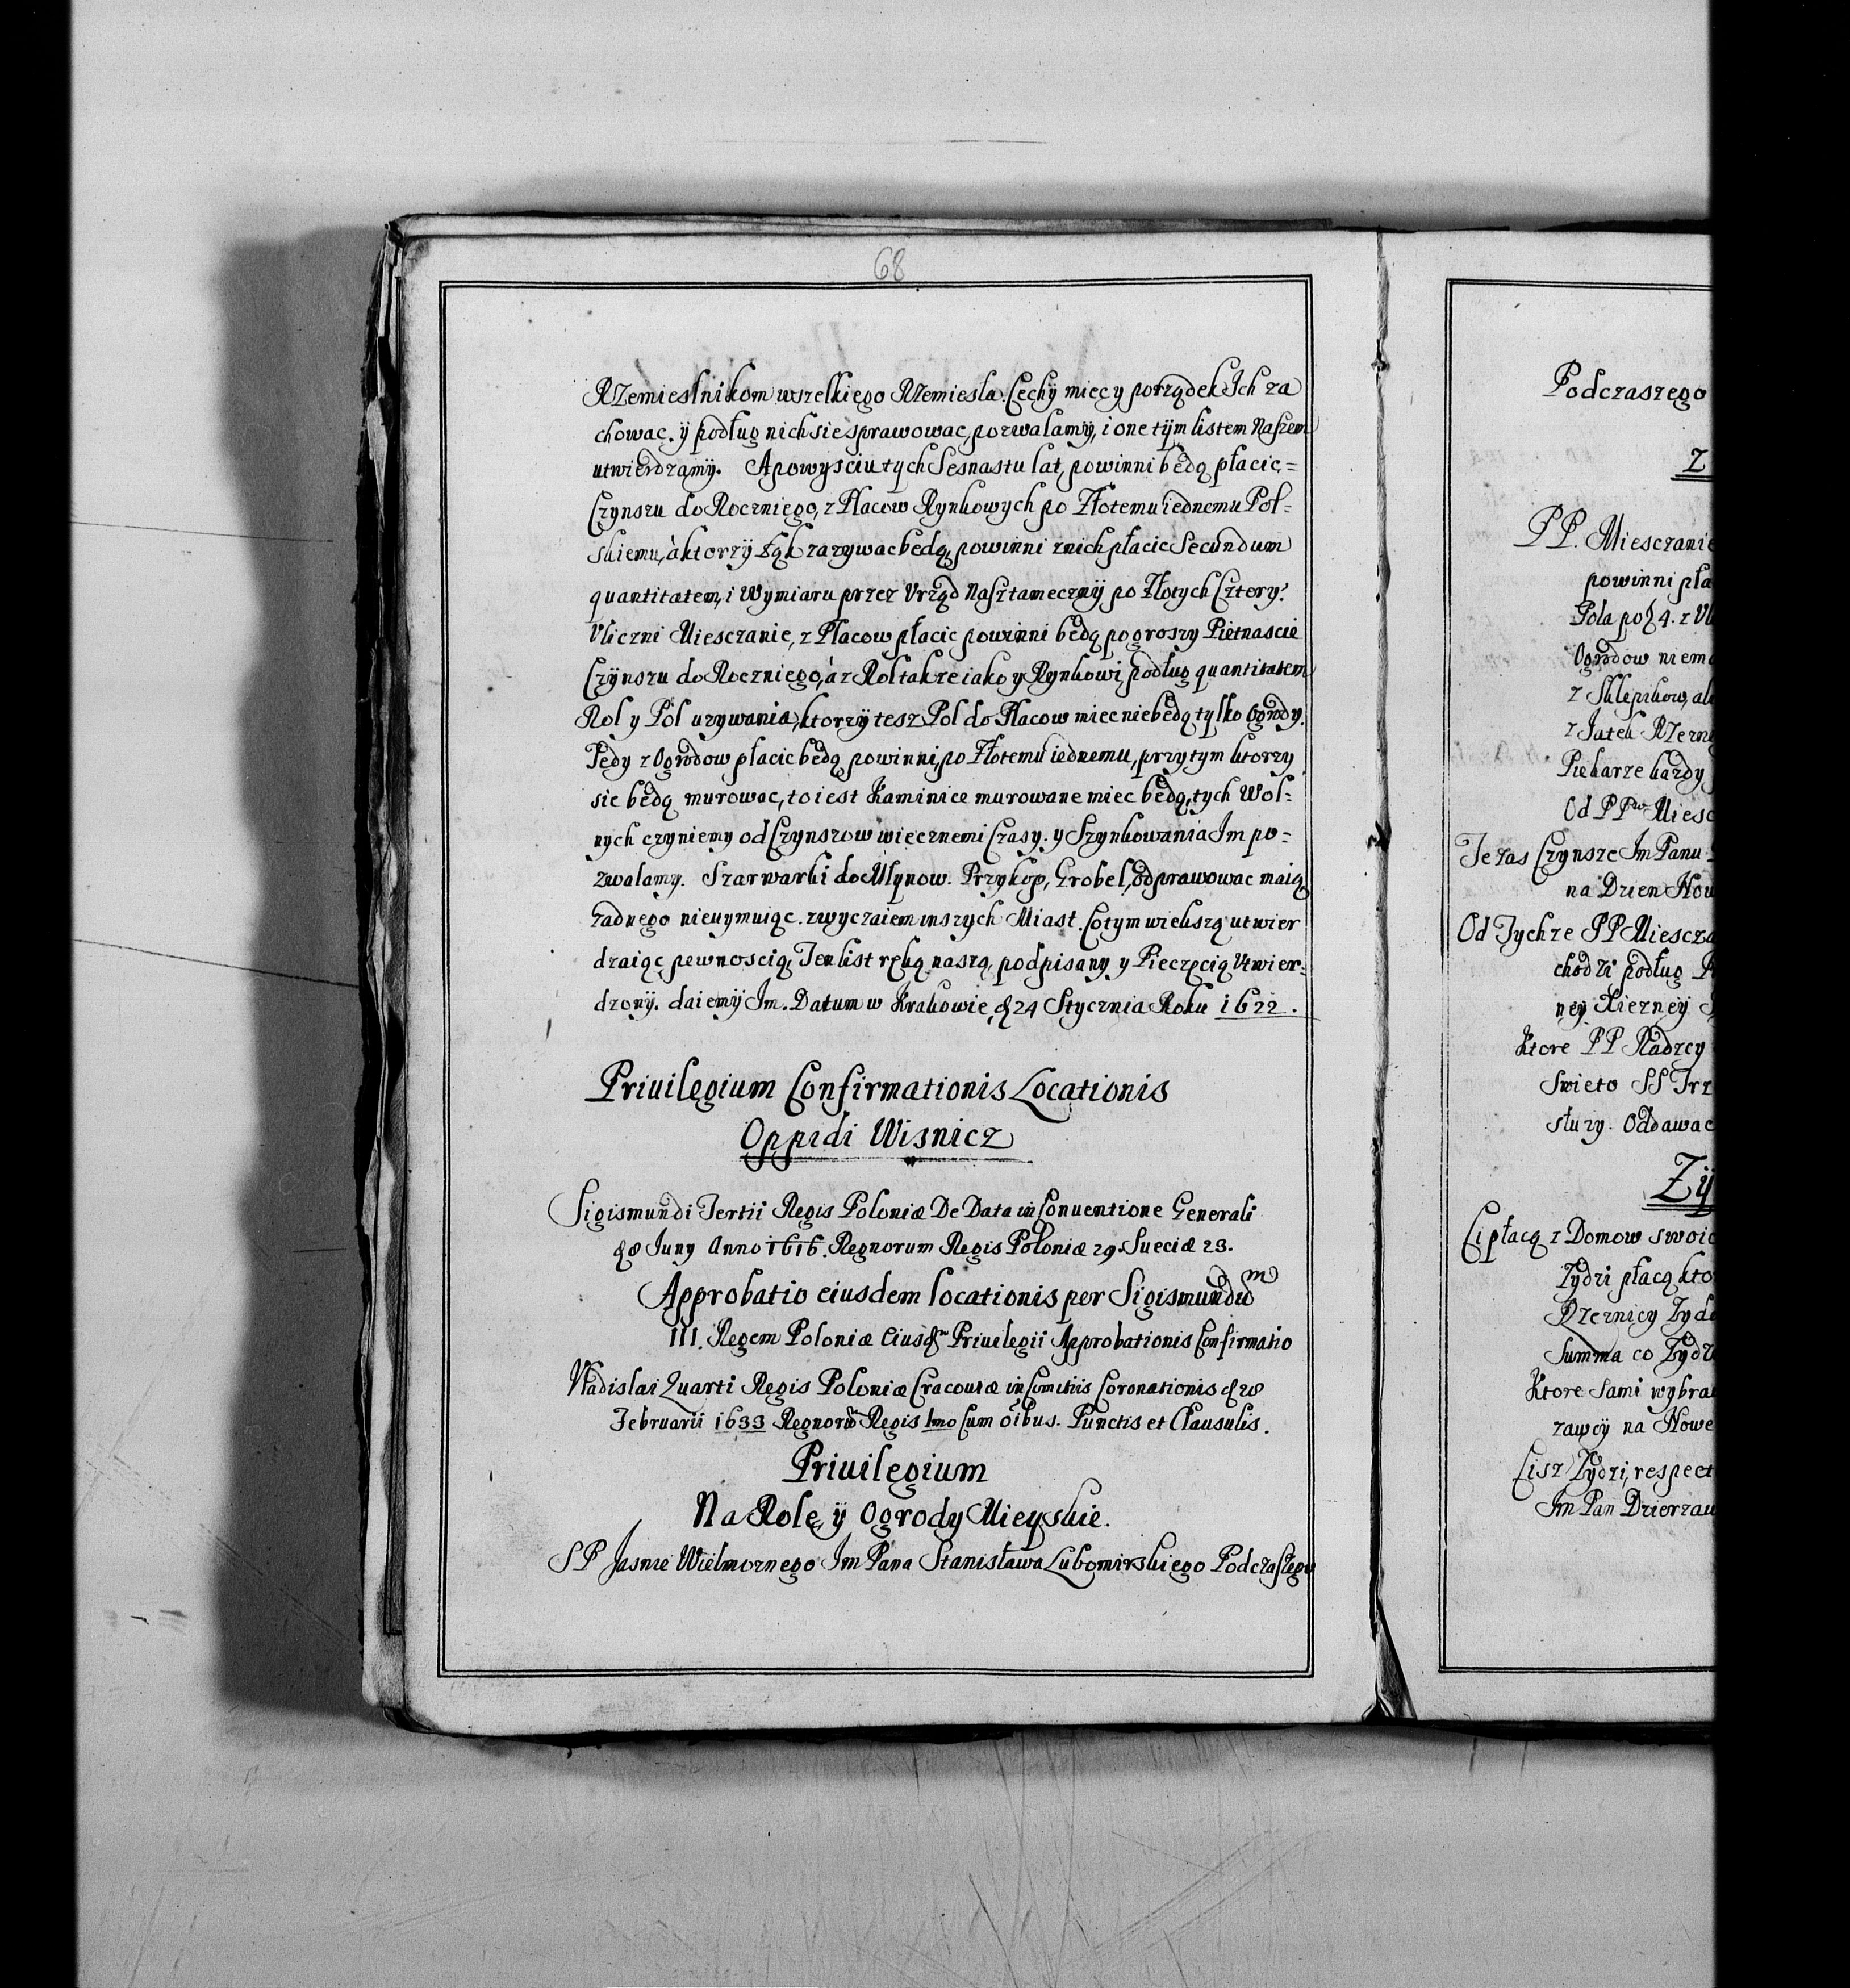 68
RZemieslnikom wszelkiego RZemiesla Cechy miec y porządek Ich za
chowac. ÿ podług nich sie sprawowac, pozwalamÿ, i one tÿm listem Naszem
utwierdzamÿ. A powysciu tych Sesnastu lat, powinni będą płacic =
Czynszu do Roczniego, z Placow Rynkowych po Złotemu iednemu Pol =
skiemu, à ktorzÿ Łąk zazywac będą, powinni znich płacic Secundum
quantitatem, i Wymiaru przez Vrząd Nasz tameczny po Złotych Cztery.
Vliczni Miesczanie, z Placow płacic powinni będą po groszy Pietnascie
Czÿnszu do Roczniego, à z Rol takze iako y Rynkowi, podług quantitatem
Rol y Pol uzywania, ktorzÿ tesz Pol do Placow miec niebędą tylko Ogrody.
Tedy z Ogrodow płacic będą powinni, po Złotemu iednemu, przy tym ktorzy
sie będą murowac, to iest Kaminice murowane miec będą, tych Wol =
nych czyniemy od Czynszow wiecznemi Czasy. y Szynkowania Im po =
zwalamy. Szarwarki do Młynow. Przykop, Grobel, odprawowac maią
zadnego nieuymuiąc. zwyczaiem inszych Miast. Co tym wiekszą utwier
dzaiąc pewnoscią, Ten list ręką naszą, podpisany y Pieczęcią Utwier =
dzonÿ. daiemÿ Im. Datum w Krakowie, d 24 Stycznia Roku 1622.
Priuilegium Confirmationis Locationis
Oppidi Wisnicz
Sigismundi Tertii Regis Poloniæ De Data in Conuentione Generali
d 8 Juny Anno 1616. Regnorum Regis Poloniæ 29. Sueciæ 23.
Approbatio eiusdem locationis per Sigismundum
III. Regem Poloniæ Eiusdm Priuilegii Approbationis Confirmatio
Vladislai Quarti Regis Poloniæ Cracouiæ in Comitiis Coronationis d 28
Februarii 1633 Regnorũ Regis Imo Cum oĩbus. Punctis et Clausulis.
Priuilegium
Na Role, ÿ Ogrody Mieyskie.
S P Jasnie Wielmoznego Im Pana Stanisława Lubomirskiego Podczaszego
Podczaszego
Z
P P. Miesczanie
powinni pła
Pola po
Ogrodow niem
z Sklepikow, al
z Jatek RZezn
Piekarze kazdy
Od P Pw Miesc
Te zas Czynsze Im Panu
na Dzien Now
Od Tychze P P Miescza
chodzi podług
ney
Ktore P P Radzcy
Swieto SS Trz
słuzy. Oddawac
Zÿ
Ci płacą z Domow swoic
Zydzi płacą kto
RZeznicy Zyd
Summa co Zydz
Ktore Sami wybra
zawcÿ na Nowe
Cisz Zydzi, respect
Im Pan Dzierzaw